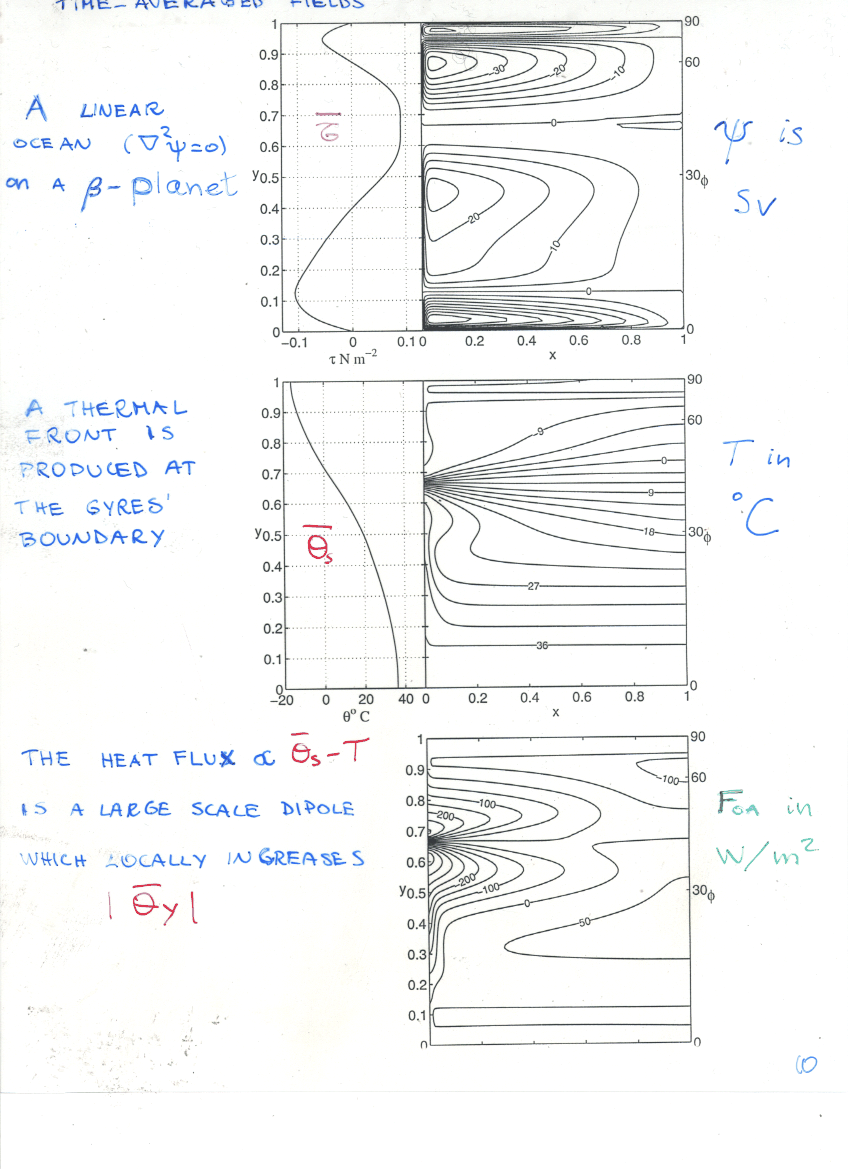 TIME-AVERAGED FIELDS
A LINEAR
OCEAN (∇²ψ=0)
on A β-planet
1
0.9
0.8
0.7
0.6
y0.5
0.4
0.3
0.2
0.1
0
−0.1 0 0.1
τ N m⁻²
τ̄
−30 −20 −10
0
−20
−10
0
0 0.2 0.4 0.6 0.8 1
x
90
60
30φ
0
ψ is
SV
A THERMAL
FRONT IS
PRODUCED AT
THE GYRES'
BOUNDARY
1
0.9
0.8
0.7
0.6
y0.5
0.4
0.3
0.2
0.1
0
−20 0 20 40
θ° C
Θ̄s
−9
0
9
18
27
36
0 0.2 0.4 0.6 0.8 1
x
90
60
30φ
0
T in
°C
THE HEAT FLUX ∝ Θ̄s−T
IS A LARGE SCALE DIPOLE
WHICH LOCALLY INCREASES
|Θ̄y|
1
0.9
0.8
0.7
0.6
y0.5
0.4
0.3
0.2
0.1
0
−100
100
200
−200
−100
0
50
90
60
30φ
0
FOA in
W/m²